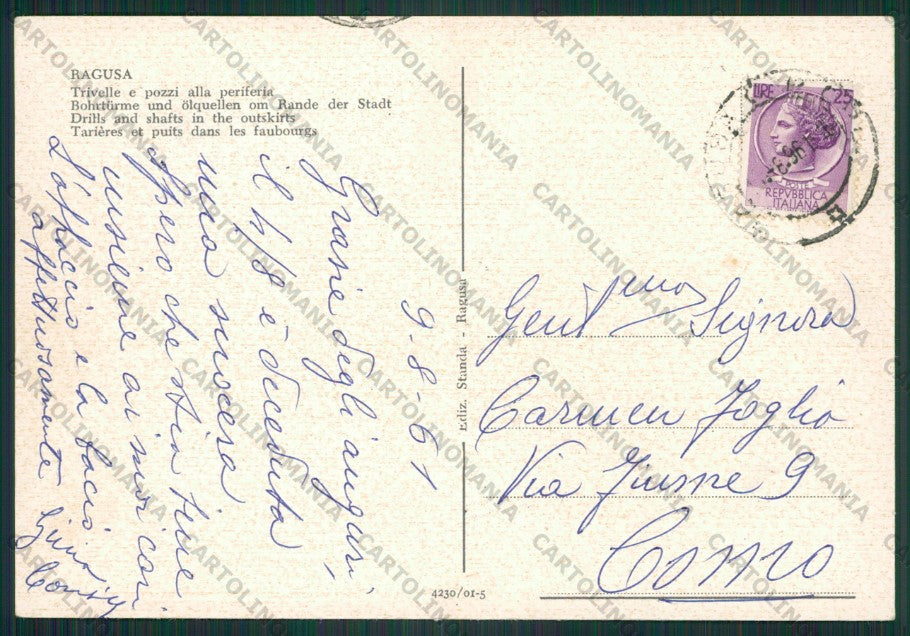 RAGUSA
Trivelle e pozzi alla periferia
Bohrtürme und ölquellen om Rande der Stadt
Drills and shafts in the outskirts
Tarières et puits dans les faubourgs
9-8-61
Grazie degli auguri,
il 4/8 è deceduta
mia suocera
Spero che stia bene
insieme ai suoi cari
L'abbraccio e la bacio
affettuosamente
Ediz. Standa - Ragusa
4230/01-5
LIRE 25
POSTE
REPVBBLICA
ITALIANA
Gent.mo Signora
Carmen Foglio
Via Fiume 9
Como
CARTOLINOMANIA